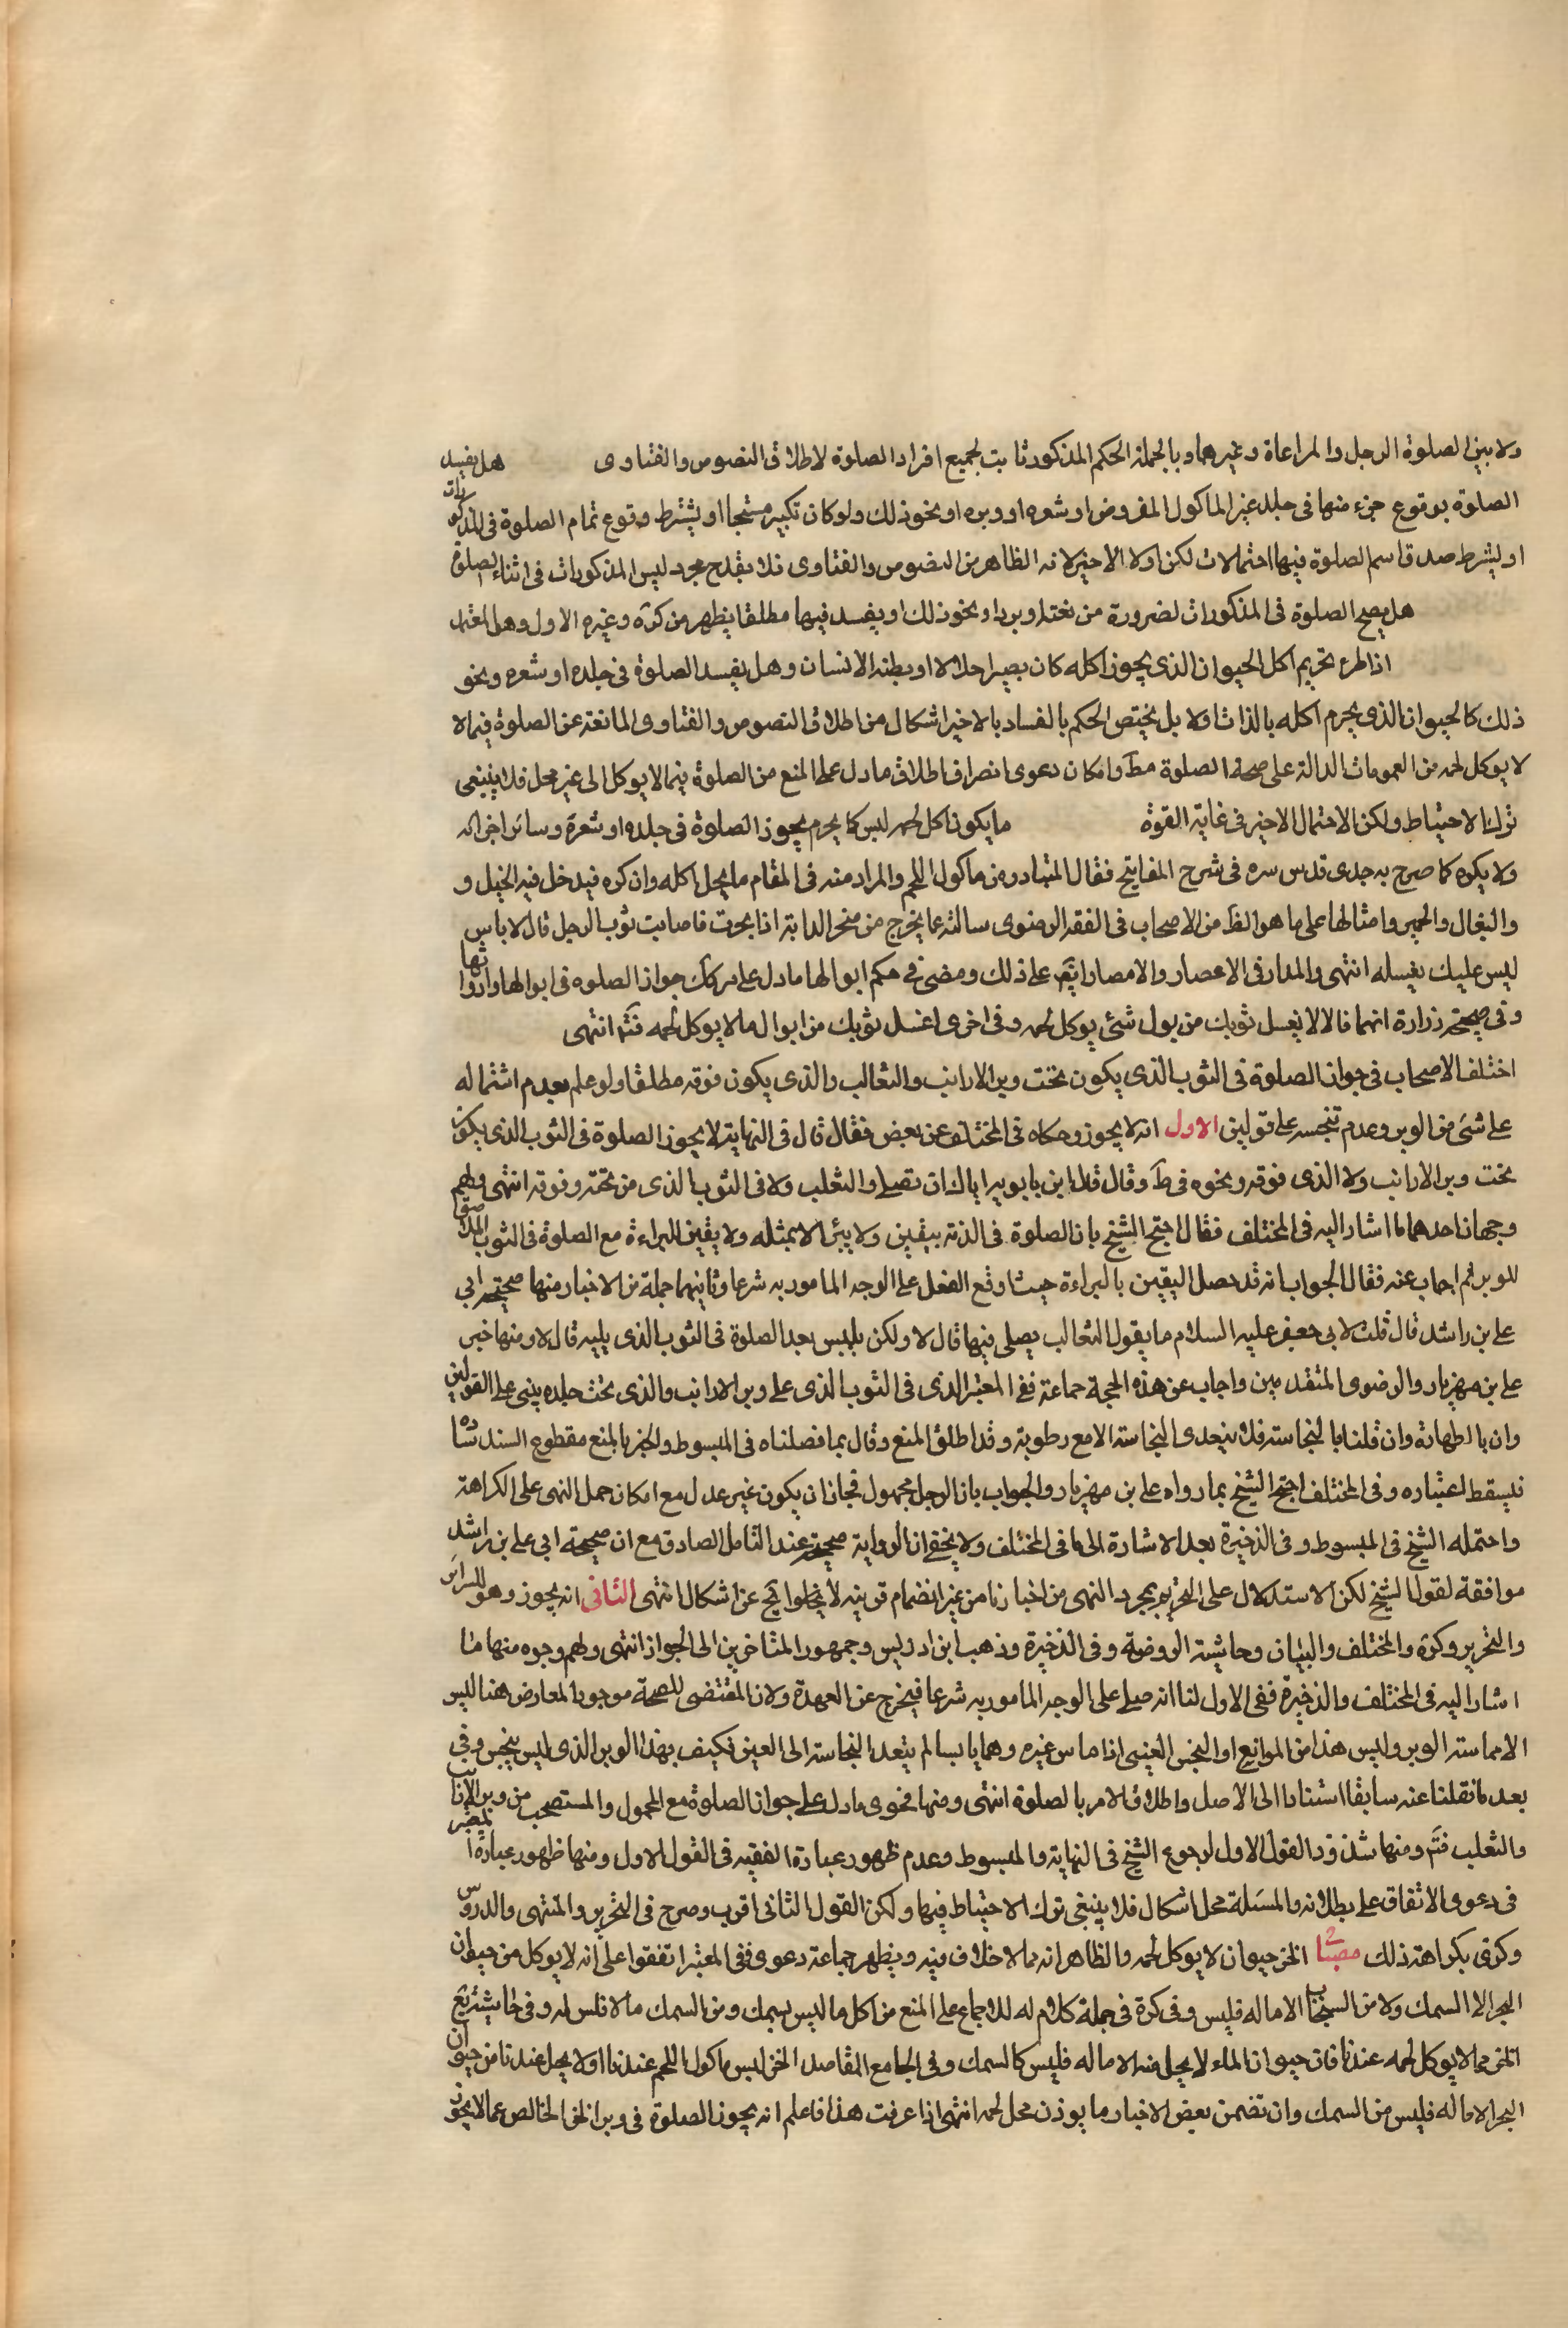 ولا بين الصلوة الرجل والمراعاة وغيرهما وبالجملة الحكم المذكور ثابت لجميع افراد الصلوة لاطلاق النصوص والفتاوى هل يفسد
الصلوة بوقوع جزء منها فى جلد غير الماكول المفروض او شعره او وبره او نحو ذلك ولو كان تكبير مستحبا او يشترط وقوع تمام الصلوة فى المذكورات
او يشرط صدق اسم الصلوة فيها احتمالات لكن اولا الاخير لانه الظاهر من النصوص والفتاوى فلا يقدح مجرد لبس المذكورات فى اثناء الصلوة
هل يصح الصلوة فى المذكورات لضرورة من او برد او نحو ذلك او يفسد فيها مطلقا يظهر من كرة وغيره الاول وهو المعتمد
اذا طرء تحريم اكل الحيوان الذى يجوز اكله كان يصير جلالا او يطئه الانسان وهل يفسد الصلوة فى جلده او شعره ونحو
ذلك كالحيوان الذى يحرم اكله بالذات اولا بل يختص الحكم بالفساد بالاخير اشكال من اطلاق النصوص والفتاوى المانعة عن الصلوة فيما لا
لا يوكل لحمه من العمومات الدالة على صحة الصلوة مط وامكان دعوى انصراف اطلاق ما دل على المنع من الصلوة فيما لا يوكل الى غير محل فلا ينبغى
ترك الاحتياط ولكن الاحتمال الاخير فى غاية القوة ما يكون اكل لحمه ليس كا يحرم يجوز الصلوة فى جلده او شعرة وسائر اجزائه
ولا يكره كما صرح به جدى قدس سره فى شرح المفاتيح فقال المتبادر من ماكول اللحم والمراد منه فى المقام ما يحل اكله وان كره فيدخل فيه الخيل و
والبغال والحمير وامثالها على ما هو الظ من الاصحاب فى الفقه الرضوى سالته عما يخرج من منخر الدابة اذا نخرت فاصابت ثوب الرجل قال لا باس
ليس عليك بغسله انتهى والمدار فى الاعصار والامصار ايضا على ذلك ومضى فى حكم ابوالها ما دل على جواز الصلوه فى ابوالها وارواثها
وفى صحيحة زرارة انهما قالا لا يغسل ثوبك من بول شئ يوكل لحمه وفى اخرى اغسل ثوبك من ابوال ما لا يوكل لحمه فتم انتهى
اختلف الاصحاب فى جواز الصلوة فى الثوب الذى يكون تحت وبر الارانب والثعالب والذى يكون فوقه مطلقا ولو علم بعدم اشتماله
على شئ من الوبر وعدم تنجسه على قولين الاول انه لا يجوز وحكاه فى المختلف عن بعض فقال قال فى النهاية لا يجوز الصلوة فى الثوب الذى يكون
تحت وبر الارانب ولا الذى فوقه ونحوه فى ط وقال قال ابن بابويه اياك ان تصلى والثعلب ولا فى الثوب الذى من تحته وفوقه انتهى ولهم
وجهان احدهما ما اشار اليه فى المختلف فقال احتج الشيخ بان الصلوة فى الذمة بيقين ولا يبرء الا بمثله ولا يقين البراءة مع الصلوة فى الثوب الملاصق
للوبر ثم اجاب عنه فقال الجواب انه قد حصل اليقين بالبراءة حيث اوقع الفعل على الوجه المامور به شرعا وثانيهما جملة من الاخبار منها صحيحة ابى
على بن راشد قال قلت لابى جعفر عليه السلام ما يقول الثعالب يصلى فيها قال لا ولكن يلبس بعد الصلوة قلت فى الثوب الذى يليه قال لا ومنها خبر
على بن مهزيار والرضوى المتقدمين واجاب عن هذه الحجة جماعة ففى المعتبر الذى فى الثوب الذى على وبر الارانب والذى تحت جلده يبنى على القولين
وان بالطهارة وان قلنا بالنجاسة فلا تتعدى النجاسة الا مع رطوبة وقد اطلق المنع وقال بما فصلناه فى المبسوط والخبر بالمنع مقطوع السند شاذ
فيسقط اعتباره وفى المختلف احتج الشيخ بما رواه على بن مهزيار والجواب بان الرجل مجهول فجاز ان يكون غير عدل مع امكان حمل النهى على الكراهة
واحتمله الشيخ فى المبسوط وفى الذخيرة بعد الاشارة الى ما فى المختلف ولا يخفى ان الرواية صحيحة عند التامل الصادق مع ان صحيحة ابى على بن راشد
موافقة لقول الشيخ لكن الاستدلال على التحريم بمجرد النهى من اخبارنا من غير انضمام قرينه لا يخلوا عن اشكال انتهى الثانى انه يجوز وهو للسرائر
والتحرير وكرة والمختلف والبيان وحاشية الروضة وفى الذخيرة وذهب ابن ادريس وجمهور المتاخرين الى الجواز انتهى ولهم وجوه منها ما
اشار اليه فى المختلف والذخيرة ففى الاول لنا انه صلى على الوجه المامور به شرعا فيخرج عن العهدة ولان المقتضى للصحة موجود المعارض هنا ليس
الا مماسته الوبر وليس هذا من الموانع او النجس العينى اذا ماس غيره وهما يابسان لم يتعد النجاسة الى العين فكيف بهذا الوبر الذى ليس بنجس وفى
بعد ما نقلنا عنه سابقا استنادا الى الاصل واطلاق الامر بالصلوة انتهى ومنها فحوى ما دل على جواز الصلوة مع المحمول والمستصحب من وبر الارانب
والثعلب فتم ومنها شذوذ القول الاول لرجوع الشيخ فى النهاية والمبسوط وعدم ظهور عبارة الفقيه فى القول الاول ومنها ظهور عبارة المعتبر
فى دعوى الاتفاق على بطلانه والمسئلة محل اشكال فلا ينبغى ترك الاحتياط فيها ولكن القول الثانى اقرب وصرح فى التحرير والمنتهى والدروس
وكرة بكراهة ذلك الخز حيوان لا يوكل لحمه والظاهر انه مما لا خلاف فيه ويظهر جماعة دعوى ففى المعتبر اتفقوا على انه لا يوكل من حيوان
البحر الا السمك ولا من السمك الا ما له فليس وفى كرة فى جملة كلام له للاجماع على المنع من اكل ما ليس بسمك ومن السمك ما لا فلس له وفى حاشية يع
الخز مما لا يوكل لحمه عندنا فان حيوان الماء لا يحل منه الا ما له فليس كالسمك وفى الجامع المقاصد الخز ليس ماكول اللحم عندنا اولا يحل عندنا من حيوان
البحر الا ما له فليس من السمك وان تضمن بعض الاخبار ما يوذن محل لحمه انتهى اذا عرفت هذا فاعلم انه يجوز الصلوة فى وبر الخز الخالص عما لا يجوز